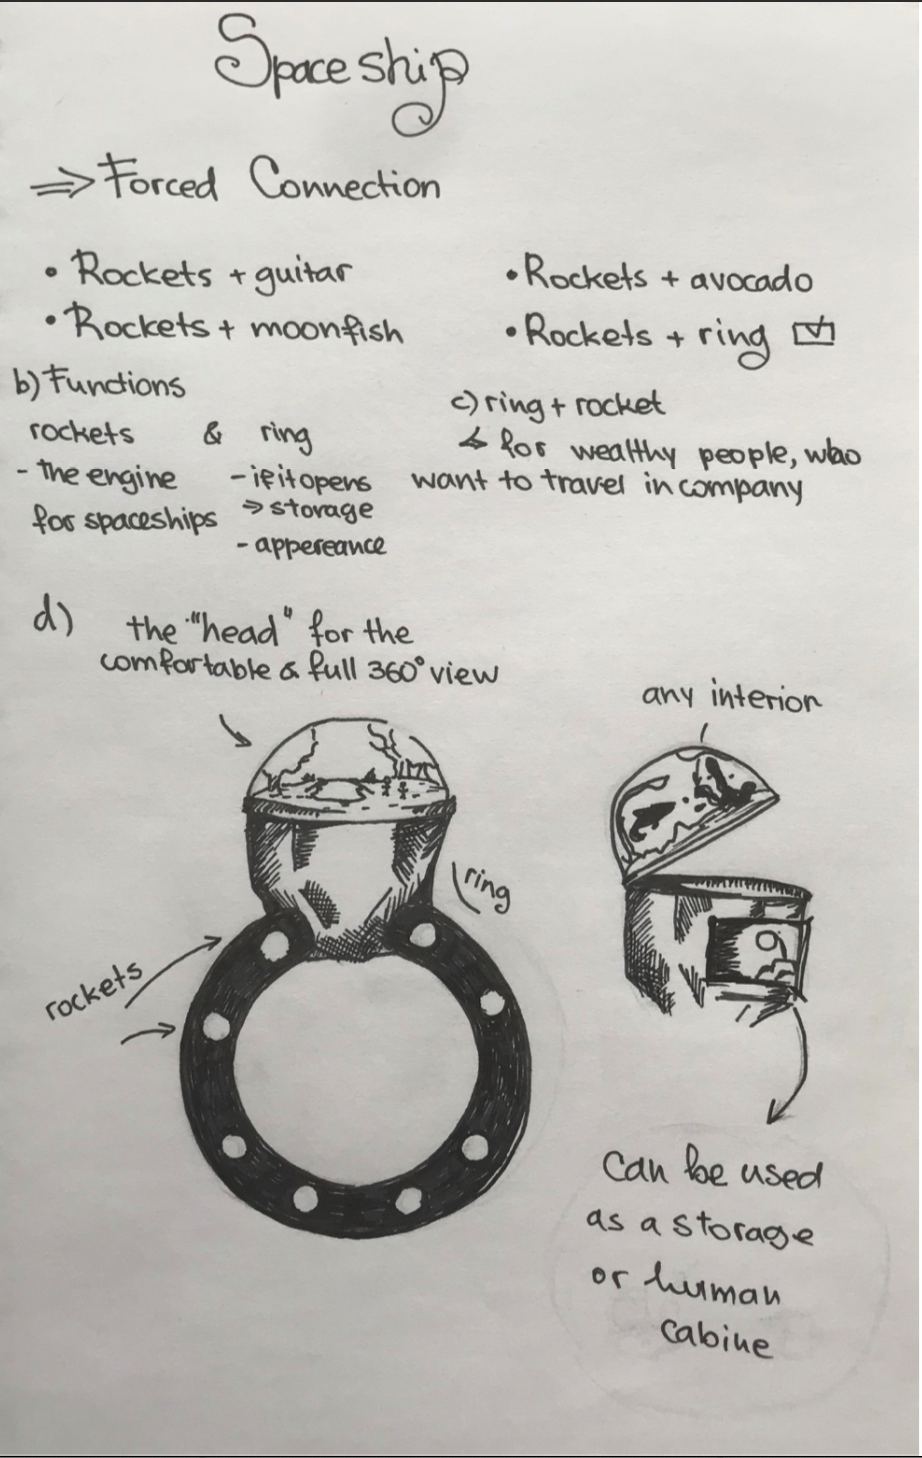 Spaceship
⇒ Forced Connection
• Rockets + guitar
• Rockets + moonfish
• Rockets + avocado
• Rockets + ring ☑
b) Functions
rockets & ring
- the engine
for spaceships
- if it opens
⇒ storage
- appereance
c) ring + rocket
↳ for wealthy people, who
want to travel in company
d) the "head" for the
comfortable & full 360° view
any interior
ring
rockets
can be used
as a storage
or human
cabine